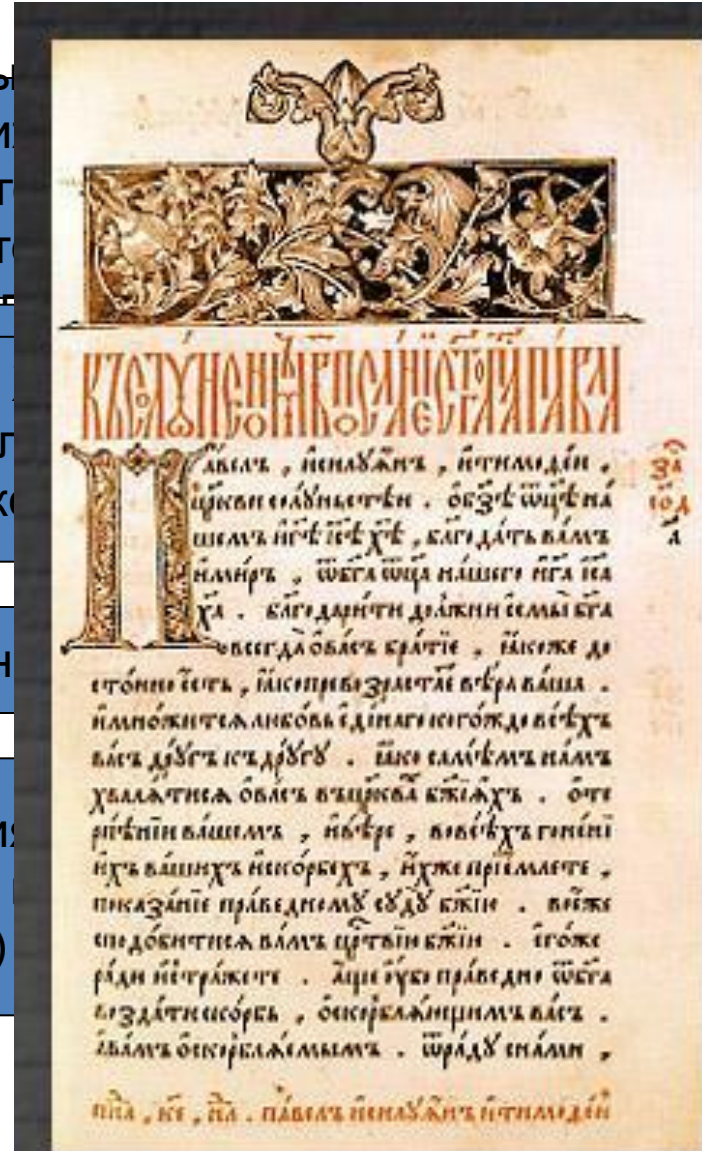 КЪ СОЛꙊНЕѠМЪ В҃ ПОСЛАНІЕ СТ҃ГО АП҃ЛА ПАВЛА
Па́велъ , и҆ силꙋа́нъ , и҆ тимоѳе́и ,
цр҃кви солꙋ́ньстѣи . ѡ҆ бз҃ѣ ѿц҃ѣ на́
шемъ и҆ гд҇ѣ і҆с҃ѣ хд҇ѣ , блг҃ода́ть ва́мъ
и҆ ми́ръ , ѿ бг҃а ѿц҃а на́шего и҆ гд҇а і҆с҃а
хд҇а . благодари́ти до́лжни є҆смы̀ бг҃а
всегда̀ ѡ҆ ва́съ бра́тїе , ꙗ҆́коже до
сто́йно є҆́сть , ꙗ҆́ко превозраста́етъ вѣ́ра ва́ша .
и҆ мно́жится любо́вь є҆ди́наго кого́ждо всѣ́хъ
ва́съ дрꙋ́гъ къ дрꙋ́гꙋ . ꙗ҆́ко самѣ́мъ на́мъ
хвали́тися ѡ҆ ва́съ въ цр҃ква бж҃їихъ . ѡ҆ те
рпѣ́нїи ва́шемъ , и҆ вѣ́ре , во всѣ́хъ гоне́нї
ихъ ва́шихъ и҆ ско́рбехъ , и҆́хже прїе́млете ,
показа́нїе пра́ведномꙋ сꙋдꙋ̀ бж҃їю . во є҆́же
сподо́битися ва́мъ цр҇твїю бж҃їю . є҆го́же
ра́ди и҆ стра́жете . а҆́ще ᲂу҆́бо пра́ведно ѿ бг҃а
возда́ти ско́рбь , ѡ҆скорблѧ́ющимъ ва́съ .
а҆ ва́мъ ѡ҆скорблѧ́емымъ . ѿра́дꙋ с на́ми ,
па́велъ и҆ силꙋа́нъ и҆ тимоѳе́и